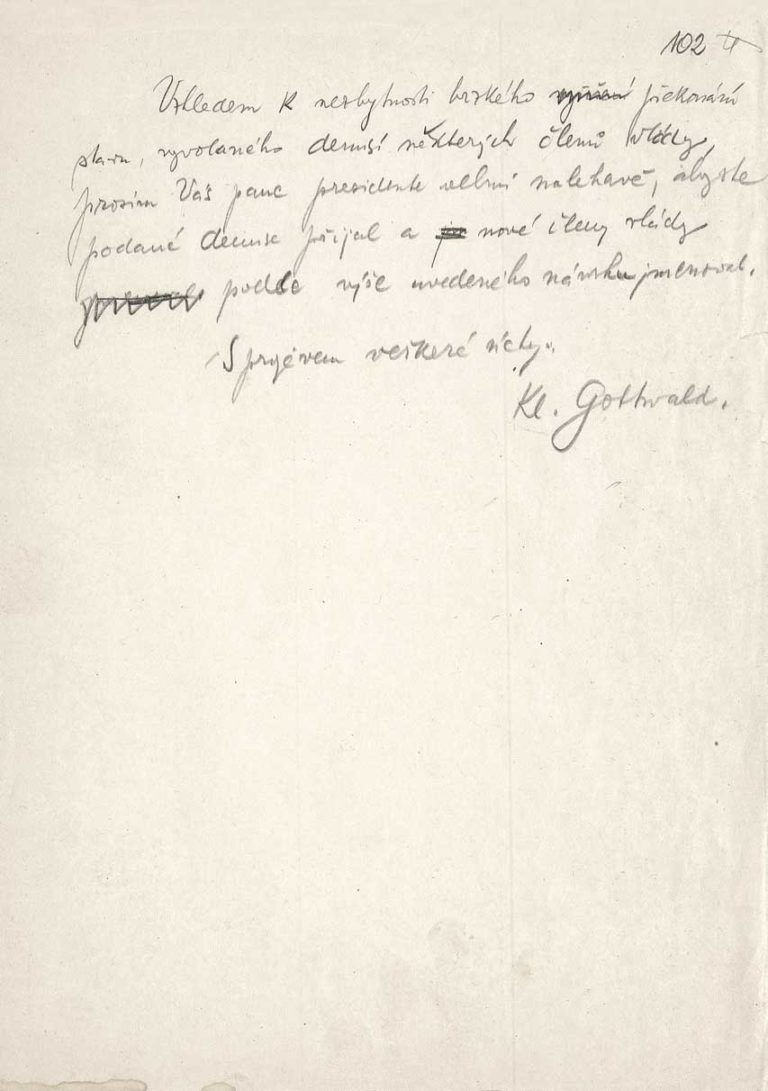 102
Vzhledem k nezbytnosti brzkého překonání
stavu, vyvolaného demisí některých členů vlády,
prosím Vás pane presidente velmi naléhavě, abyste
podané demise přijal a nové členy vlády
podle výše uvedeného návrhu jmenoval.
S projevem veškeré úcty.
Kl. Gottwald.